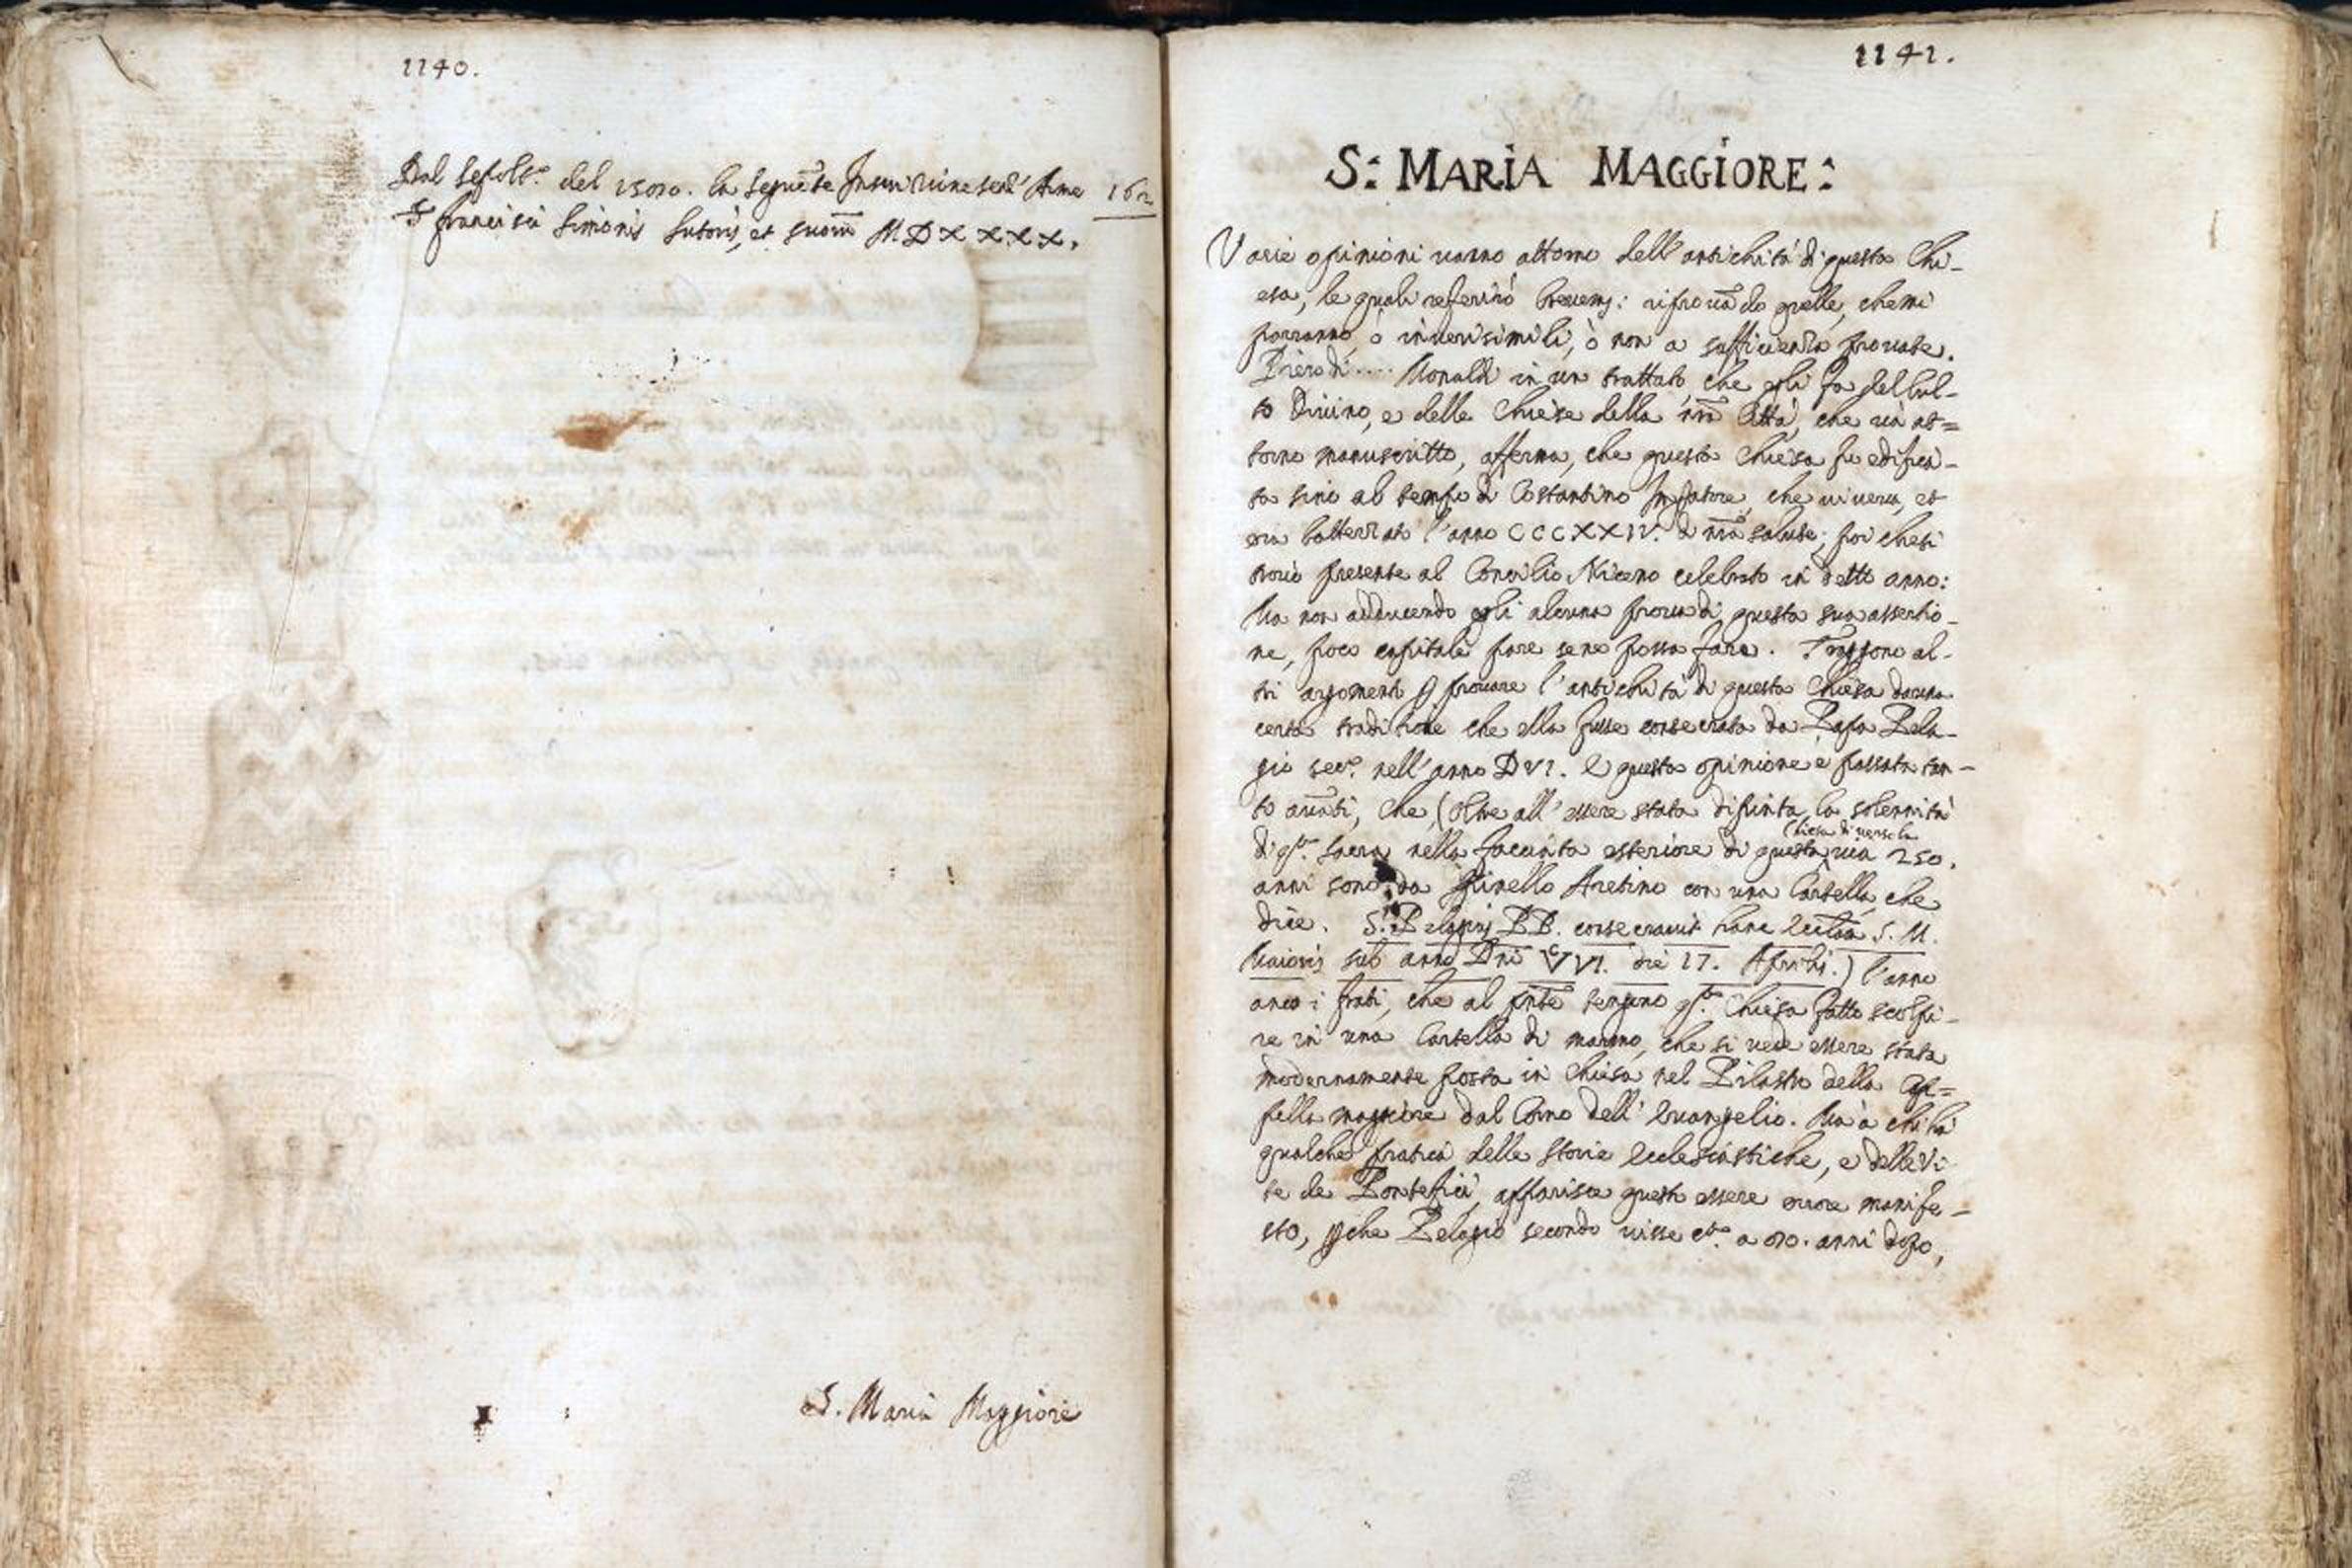 1140.
Dal Sepolt.º del 1sono. la seguēte Inscrizione senz' Arme 162
S Francisci Simonis Sutoris, et suorū MDXXXX.
S. Maria Maggiore
1141.
S: MARIA MAGGIORE:
Varie opinioni vanno attorno dell' antichità di questa Chi-
esa, le quali referirò brevem: riprouādo quelle, che mi
parranno, ò inuerisimili, ò non a sufficienza prouate.
Piero di .... Monaldi in un trattato, che egli fa del Cul-
to Diuino, e delle Chiese della nrā Città, che và at=
torno manuscritto, afferma, che questa Chiesa fu edifica-
ta sino al tempo di Costantino Impatore, che viueva, et
era battezzato l'anno CCCXXIV. di nrā salute; poi che si
trovò presente al Concilio Niceno celebrato in detto anno:
Ma non adducendo egli alcuna prova di questa sua assertio-
ne, poco capitale pare se ne possa fare. Traggono al-
tri argomento p prouare l'antichità di questa Chiesa da una
certa traditione che ella fusse consecrata da Papa Pela-
gio sec.º nell'anno DVI. e questa opinione è passata tan-
to auāti, che, (oltre all' essere stata dipinta la solennità
di q.ta Sacra nella facciata esteriore di questa Chiesa di verso la via 250.
anni sono da Spinello Aretino con una Cartella che
dice. S. Pelagius PP. consecrauit hanc Ecclām S. M.
Maioris sub anno Dni VVI. die 17. Aprilis.) l'anno
anco i frati, che al pnte tengono q.ta Chiesa fatto scolpi-
re in una Cartella di marmo, che si vede essere stata
modernamente posta in Chiesa nel Pilastro della Cap=
pella maggiore dal Corno dell' Euangelio. Ma à chi hà
qualche pratica delle storie Ecclesiastiche, e delle Vi-
te de Pontefici, apparisce questo essere errore manife-
sto, pche Pelagio secondo visse a anni dopo,